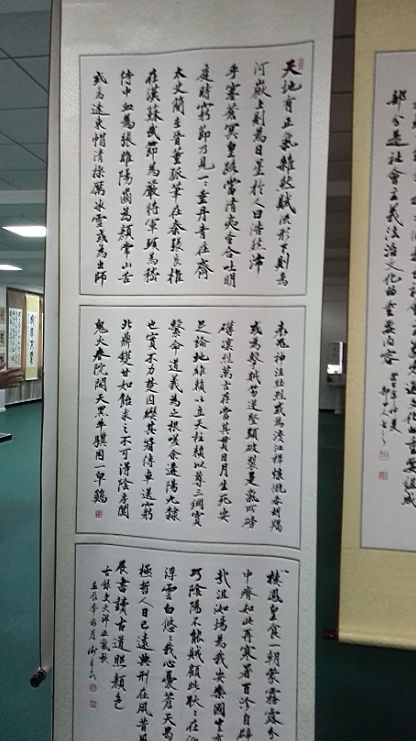 天地有正氣雜然賦流形下則為
河嶽上則為日星於人曰浩然沛
乎塞蒼冥皇路當清夷含和吐明
庭時窮節乃見一一垂丹青在齊
太史簡在晉董狐筆在秦張良椎
在漢蘇武節為嚴將軍頭為嵇
侍中血為張睢陽齒為顏常山舌
或為遼東帽清操厲冰雪或為出師
表鬼神泣壯烈或為渡江楫慷慨吞胡羯
或為擊賊笏逆豎頭破裂是氣所磅
礴凜烈萬古存當其貫日月生死安
足論地維賴以立天柱賴以尊三綱實
繫命道義為之根嗟余遘陽九隸
也實不力楚囚纓其冠傳車送窮
北鼎鑊甘如飴求之不可得陰房闃
鬼火春院閟天黑牛驥同一皁雞
棲鳳皇食一朝蒙霧露分
中瘠如此再寒暑百沴自辟
哉沮洳場為我安樂國豈有
巧陰陽不能賊顧此耿耿在仰
浮雲白悠悠我心憂蒼天曷
極哲人日已遠典刑在夙昔風
展書讀古道照顏色
文天祥正氣歌
部分是社會主義法治文化的重要內容